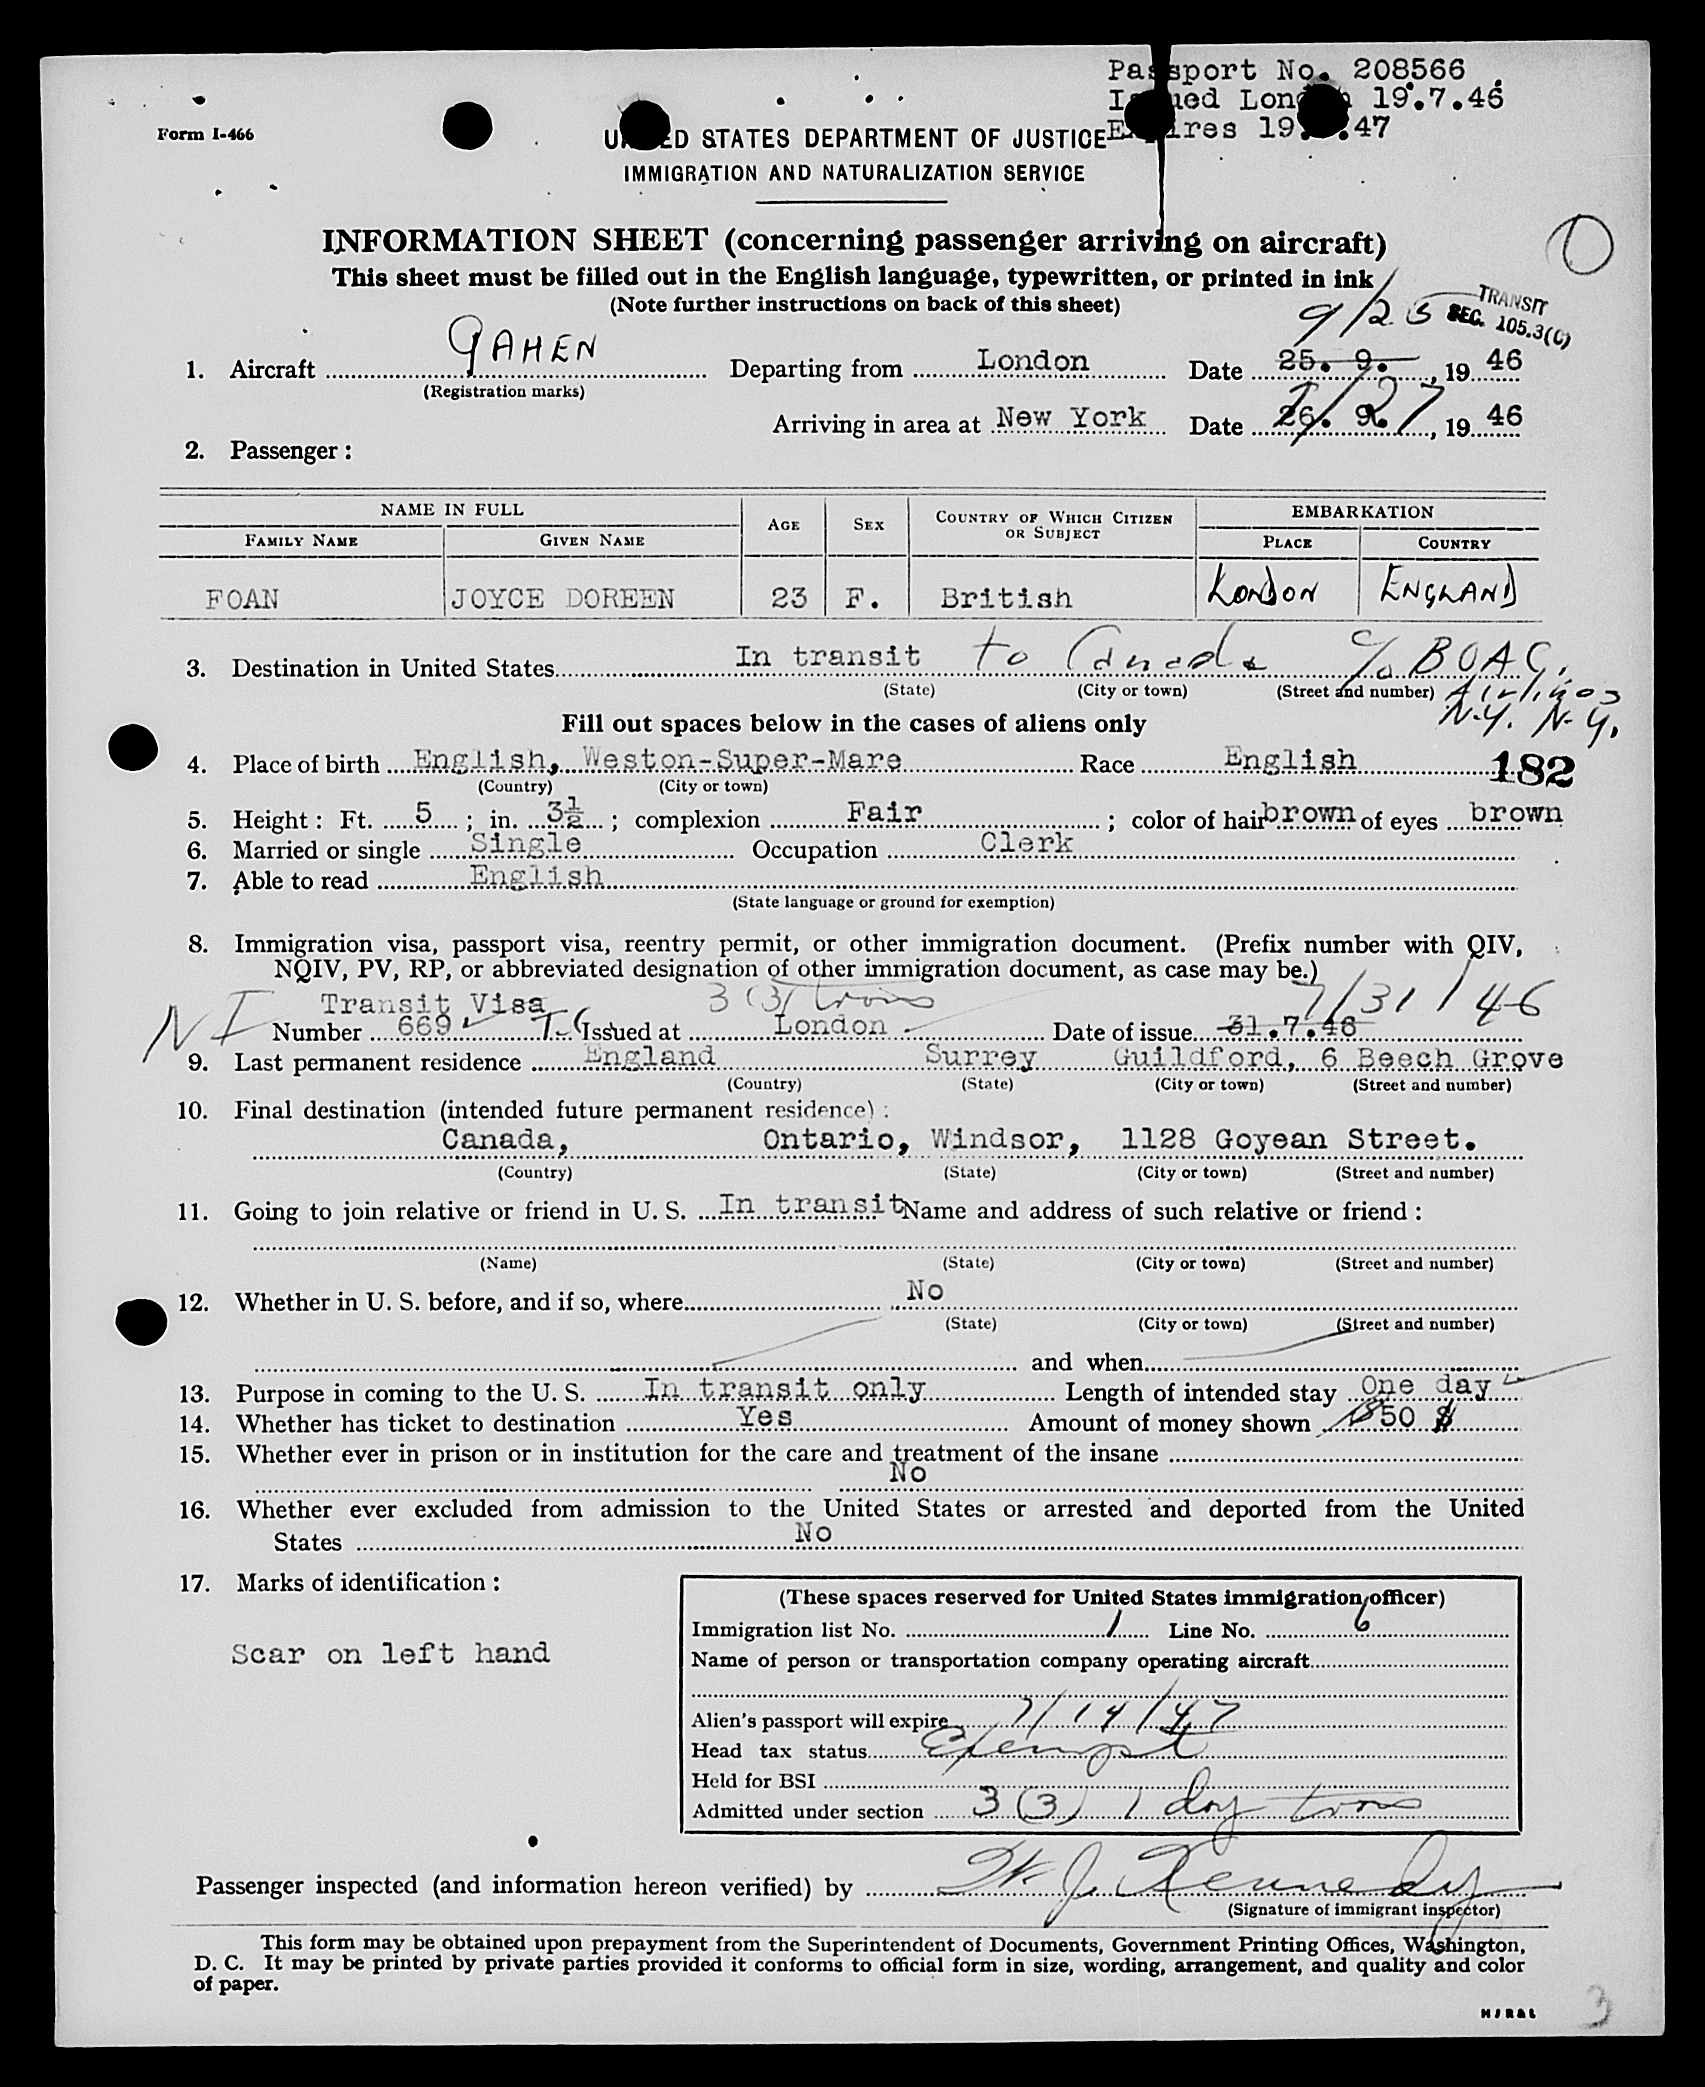 Passport No. 208566
Issued London 19.7.46
Form I-466
UNITED STATES DEPARTMENT OF JUSTICE
Expires 19. .47
IMMIGRATION AND NATURALIZATION SERVICE
INFORMATION SHEET (concerning passenger arriving on aircraft)
This sheet must be filled out in the English language, typewritten, or printed in ink
(Note further instructions on back of this sheet)
9/25 TRANSIT
SEC. 105.3(C)
1. Aircraft GAHEN Departing from London Date 25. 9. , 19 46
(Registration marks)
Arriving in area at New York Date 26. 9. 9/27, 19 46
2. Passenger :
NAME IN FULL AGE SEX COUNTRY OF WHICH CITIZEN OR SUBJECT EMBARKATION
FAMILY NAME GIVEN NAME PLACE COUNTRY
FOAN JOYCE DOREEN 23 F. British LONDON ENGLAND
3. Destination in United States In transit to Canada c/o BOAC,
(State) (City or town) (Street and number) Airlines
N.Y. N.Y.
Fill out spaces below in the cases of aliens only
4. Place of birth English, Weston-Super-Mare Race English 182
(Country) (City or town)
5. Height : Ft. 5 ; in. 3½ ; complexion Fair ; color of hair brown of eyes brown
6. Married or single Single Occupation Clerk
7. Able to read English
(State language or ground for exemption)
8. Immigration visa, passport visa, reentry permit, or other immigration document. (Prefix number with QIV,
NQIV, PV, RP, or abbreviated designation of other immigration document, as case may be.)
NI Transit Visa 3(3) trans 7/31/46
Number 669 Issued at London Date of issue 31.7.46
9. Last permanent residence England Surrey Guildford, 6 Beech Grove
(Country) (State) (City or town) (Street and number)
10. Final destination (intended future permanent residence) :
Canada, Ontario, Windsor, 1128 Goyean Street.
(Country) (State) (City or town) (Street and number)
11. Going to join relative or friend in U. S. In transit Name and address of such relative or friend :
(Name) (State) (City or town) (Street and number)
12. Whether in U. S. before, and if so, where No
(State) (City or town) (Street and number)
and when
13. Purpose in coming to the U. S. In transit only Length of intended stay One day
14. Whether has ticket to destination Yes Amount of money shown 50 $
15. Whether ever in prison or in institution for the care and treatment of the insane
No
16. Whether ever excluded from admission to the United States or arrested and deported from the United
States No
17. Marks of identification :
Scar on left hand
(These spaces reserved for United States immigration officer)
Immigration list No. 1 Line No. 6
Name of person or transportation company operating aircraft
Alien's passport will expire 7/19/47
Head tax status Exempt
Held for BSI
Admitted under section 3(3) 1 day trans
Passenger inspected (and information hereon verified) by W. J. Kennedy
(Signature of immigrant inspector)
This form may be obtained upon prepayment from the Superintendent of Documents, Government Printing Offices, Washington,
D. C. It may be printed by private parties provided it conforms to official form in size, wording, arrangement, and quality and color
of paper.
3